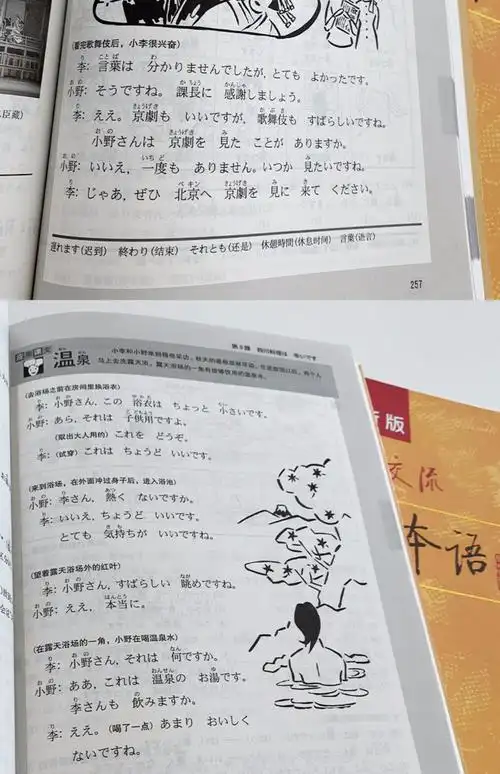 臣蔵)
(看完歌舞伎后，小李很兴奋)
李: 言葉は 分かりませんでしたが, とても よかったです。
小野: そうですね。 課長に 感謝しましょう。
李: ええ。京劇も いいですが, 歌舞伎も すばらしいですね。
小野さんは 京劇を 見た ことが ありますか。
小野: いいえ, 一度も ありません。いつか 見たいですね。
李: じゃあ, ぜひ 北京へ 京劇を 見に 来て ください。
遅れます(迟到) 終わり(结束) それとも(还是) 休憩時間(休息时间) 言葉(语言)
257
第9課 四川料理は 辛いです
温泉
(去浴场之前在房间里换浴衣)
李: 小野さん, この 浴衣は ちょっと 小さいです。
小野: あら, それは 子供用ですよ。
(取出大人用的) これを どうぞ。
李: (试穿) これは ちょうど いいです。
(来到浴场，在外面冲过身子后，进入浴池)
小野: 李さん, 熱く ないですか。
李: いいえ, ちょうど いいです。
とても 気持ちが いいですね。
(望着露天浴场外的红叶)
李: 小野さん, すばらしい 眺めですね。
小野: ええ, 本当に。
(在露天浴场的一角，小野在喝温泉水)
李: 小野さん, それは 何ですか。
小野: ああ, これは 温泉の お湯です。
李さんも 飲みますか。
李: ええ。(喝了一点) あまり おいしく
ないですね。
新版
交流
本语